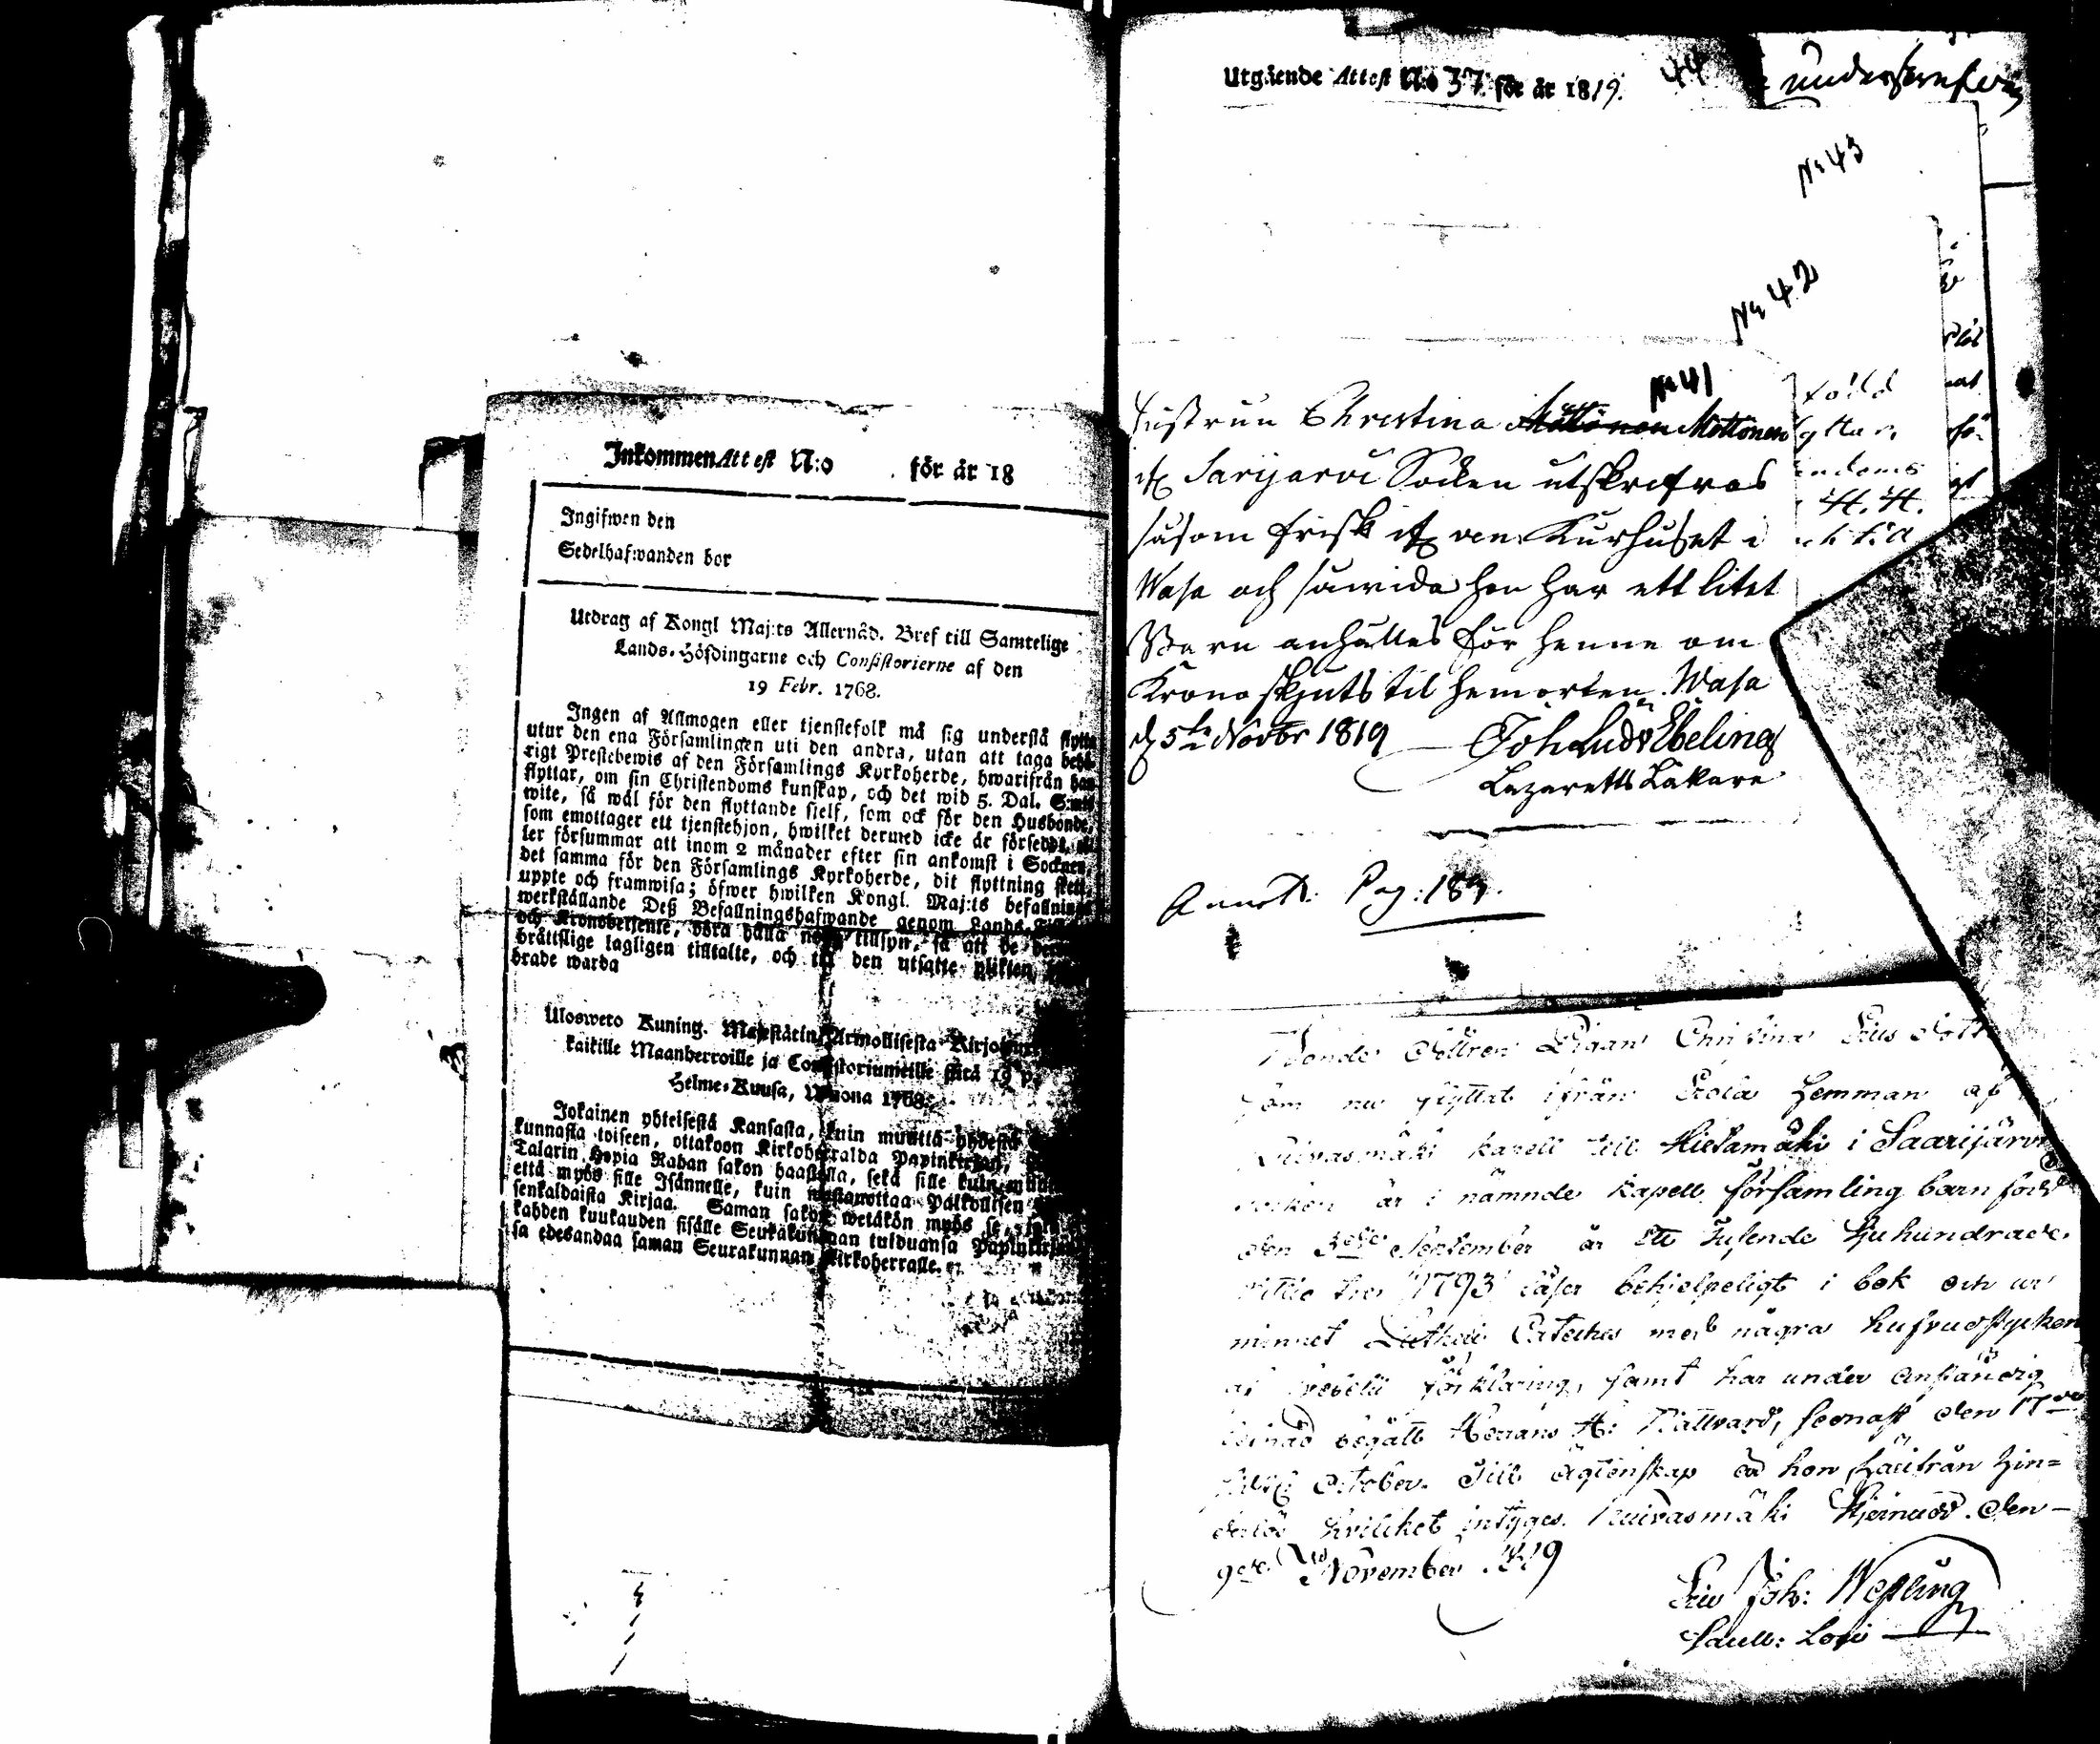 Inkommen Attest N:o för år 18
Ingifwen den
Sedelhafwanden bor
Utdrag af Kongl Maj:ts Allernåd. Bref till Samtelige
Lands-Höfdingarne och Consistorierne af den
19 Febr. 1768.
Ingen af Allmogen eller tjenstefolk må sig understå flytta
utur den ena Församlingen uti den andra, utan att taga behö-
rigt Prestebewis af den Församlings Kyrkoherde, hwarifrån han
flyttar, om sin Christendoms kunskap, och det wid 5. Dal. S:mts
wite, så wäl för den flyttande sjelf, som ock för den Husbonde,
som emottager ett tjenstehjon, hwilket dermed icke är försedt,
ler försummar att inom 2 månader efter sin ankomst i Socknen,
det samma för den Församlings Kyrkoherde, dit flyttning skett,
uppte och framwisa; öfwer hwilken Kongl. Maj:ts befallning
werkställande Deß Befallningshafwande genom Lands
och Kronobetjente, böra hålla noga tillsyn, så att de
brättslige lagligen tilltalte, och till den utsatte plikten
brade warda
Ulosweto Kuning. Majestätin Armollisesta Kirjoituxesta
kaikille Maanherroille ja Consistoriumeille siitä 19 p.
Helme-Kuusa, Wuona 1768.
Jokainen yhteisestä Kansasta, kuin muuttä yhdestä
kunnasta toiseen, ottakoon Kirkoherralda Papinkirjan,
Talarin Hopia Rahan sakon haastolla, sekä sille kuin muutta
että myös sille Isännelle, kuin wastanottaa Palkollisen
senkaldaista Kirjaa. Saman sakon wetäkön myös se,
kahden kuukauden sisälle Seurakunnan tulduansa Papinkirjan
sa edesandaa saman Seurakunnan Kirkoherralle.
Utgående Attest N:o 37 för år 1819.
44
underskrefven
No 43
No 42
No 41
Hustrun Christina Möttönen
af Sarijarvi Socken utskrifves
såsom frisk ifrån Kurhuset i
Wasa och såwida hon har ett litet
Barn anhålles för henne om
Kronoskjuts til hemorten. Wasa
d 5te Novbr 1819 Joh Ludv Ebeling
Lazaretts Läkare
Annot: Pag: 189.
Bonde Dottren Pigan Christina
som nu flyttat ifrån Hemman af
Kuivasmäki kapell till Hietamäki i Saarijärvi
socken är i nämnde Kapell församling barn född
den 3dje September år Ett Tusende Sjuhundrade
Nittio tre 1793 läser behjelpeligt i bok och ur
minnet Lutheri Cateches med några hufvudstycken
af förklaring, samt har under anständig
lefnad begått Herrans H: Nattvard, senast den 17de
October. Till ägtenskap är hon härifrån hin-
derlös hvilcket intygas. Kuivasmäki den
9de November 1819
Joh: Wesling